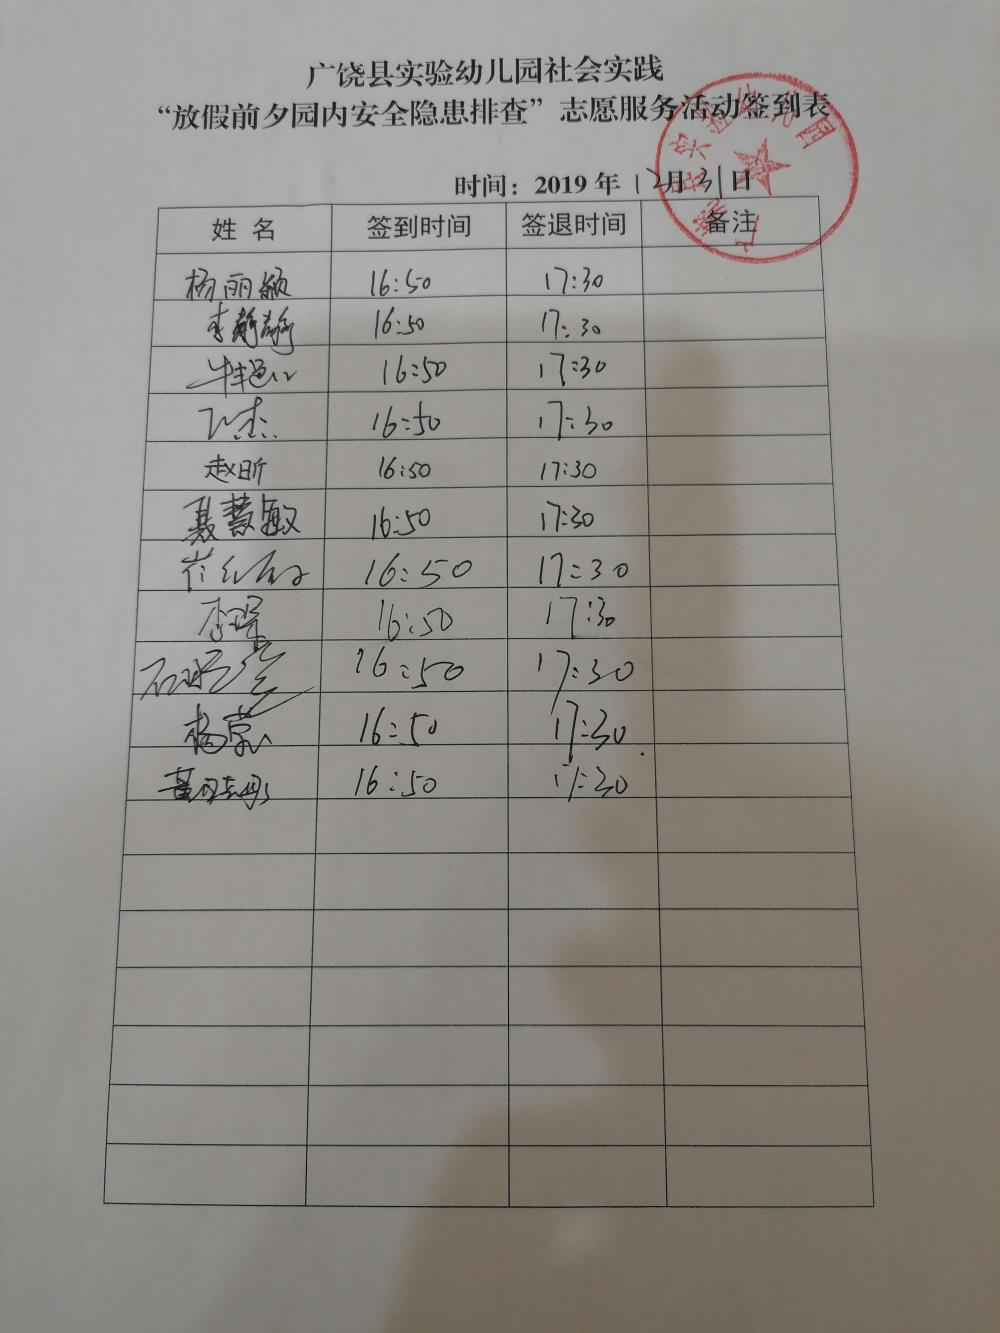 广饶县实验幼儿园社会实践
“放假前夕园内安全隐患排查”志愿服务活动签到表
广饶县实验幼儿园
时间：2019 年 12月31日
姓 名 签到时间 签退时间 备注
杨丽颖 16:50 17:30
李静静 16:50 17:30
16:50 17:30
16:50 17:30
赵昕 16:50 17:30
聂慧敏 16:50 17:30
崔 16:50 17:30
李 16:50 17:30
石 16:50 17:30
杨 16:50 17:30
董 16:50 17:30